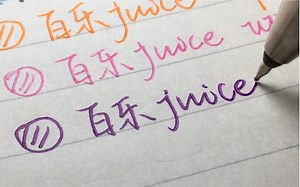 百乐juice
百乐juice
百乐juice